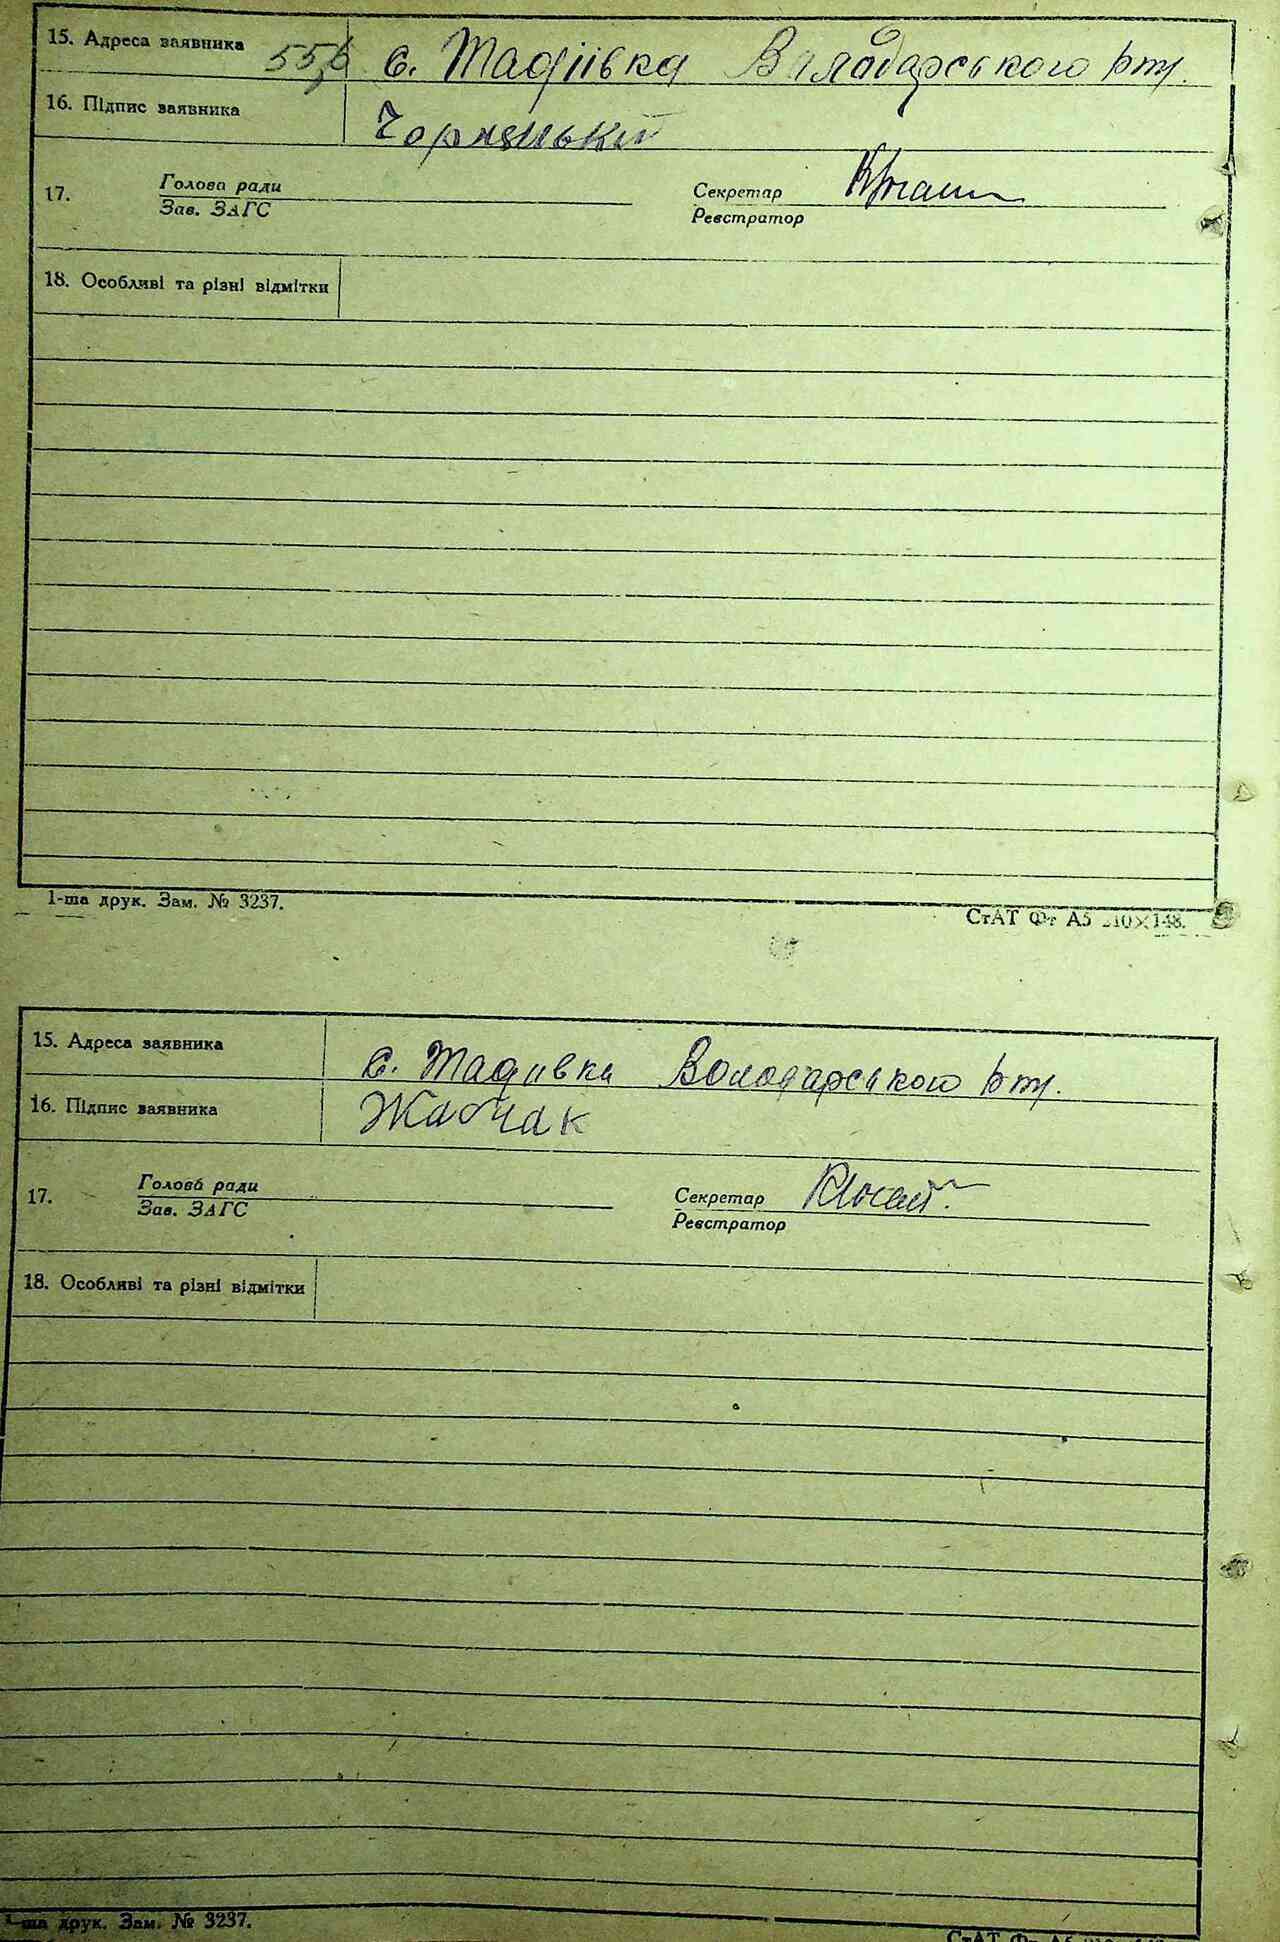 15. Адреса заявника с. Тадіївка Володарського р-ну.
16. Підпис заявника
17. Голова ради Секретар
Зав. ЗАГС Реєстратор
18. Особливі та різні відмітки
1-ша друк. Зам. № 3237.
СтАТ Фт А5 210×148.
15. Адреса заявника с. Тадіївка Володарського р-ну.
16. Підпис заявника Жабчак
17. Голова ради Секретар
Зав. ЗАГС Реєстратор
18. Особливі та різні відмітки
1-ша друк. Зам. № 3237.
СтАТ Фт А5